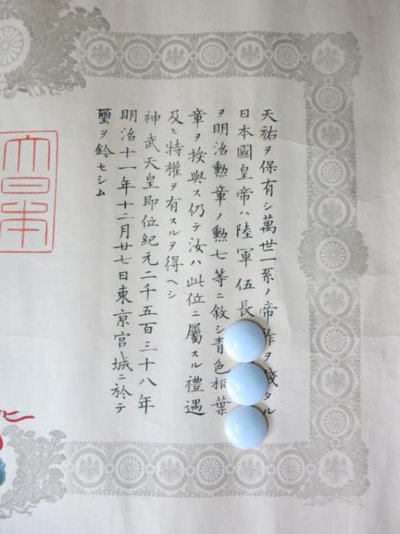 天祐ヲ保有シ萬世一系ノ帝祚ヲ踐タル
日本國皇帝ハ陸軍伍長
ヲ明治勲章ノ勲七等ニ敍シ青色桐葉
章ヲ授與ス仍テ汝ハ此位ニ屬スル禮遇
及ヒ特權ヲ有スルヲ得ヘシ
神武天皇即位紀元二千五百三十八年
明治十一年十二月廿七日東亰宮城ニ於テ
璽ヲ鈐セシム
大日本